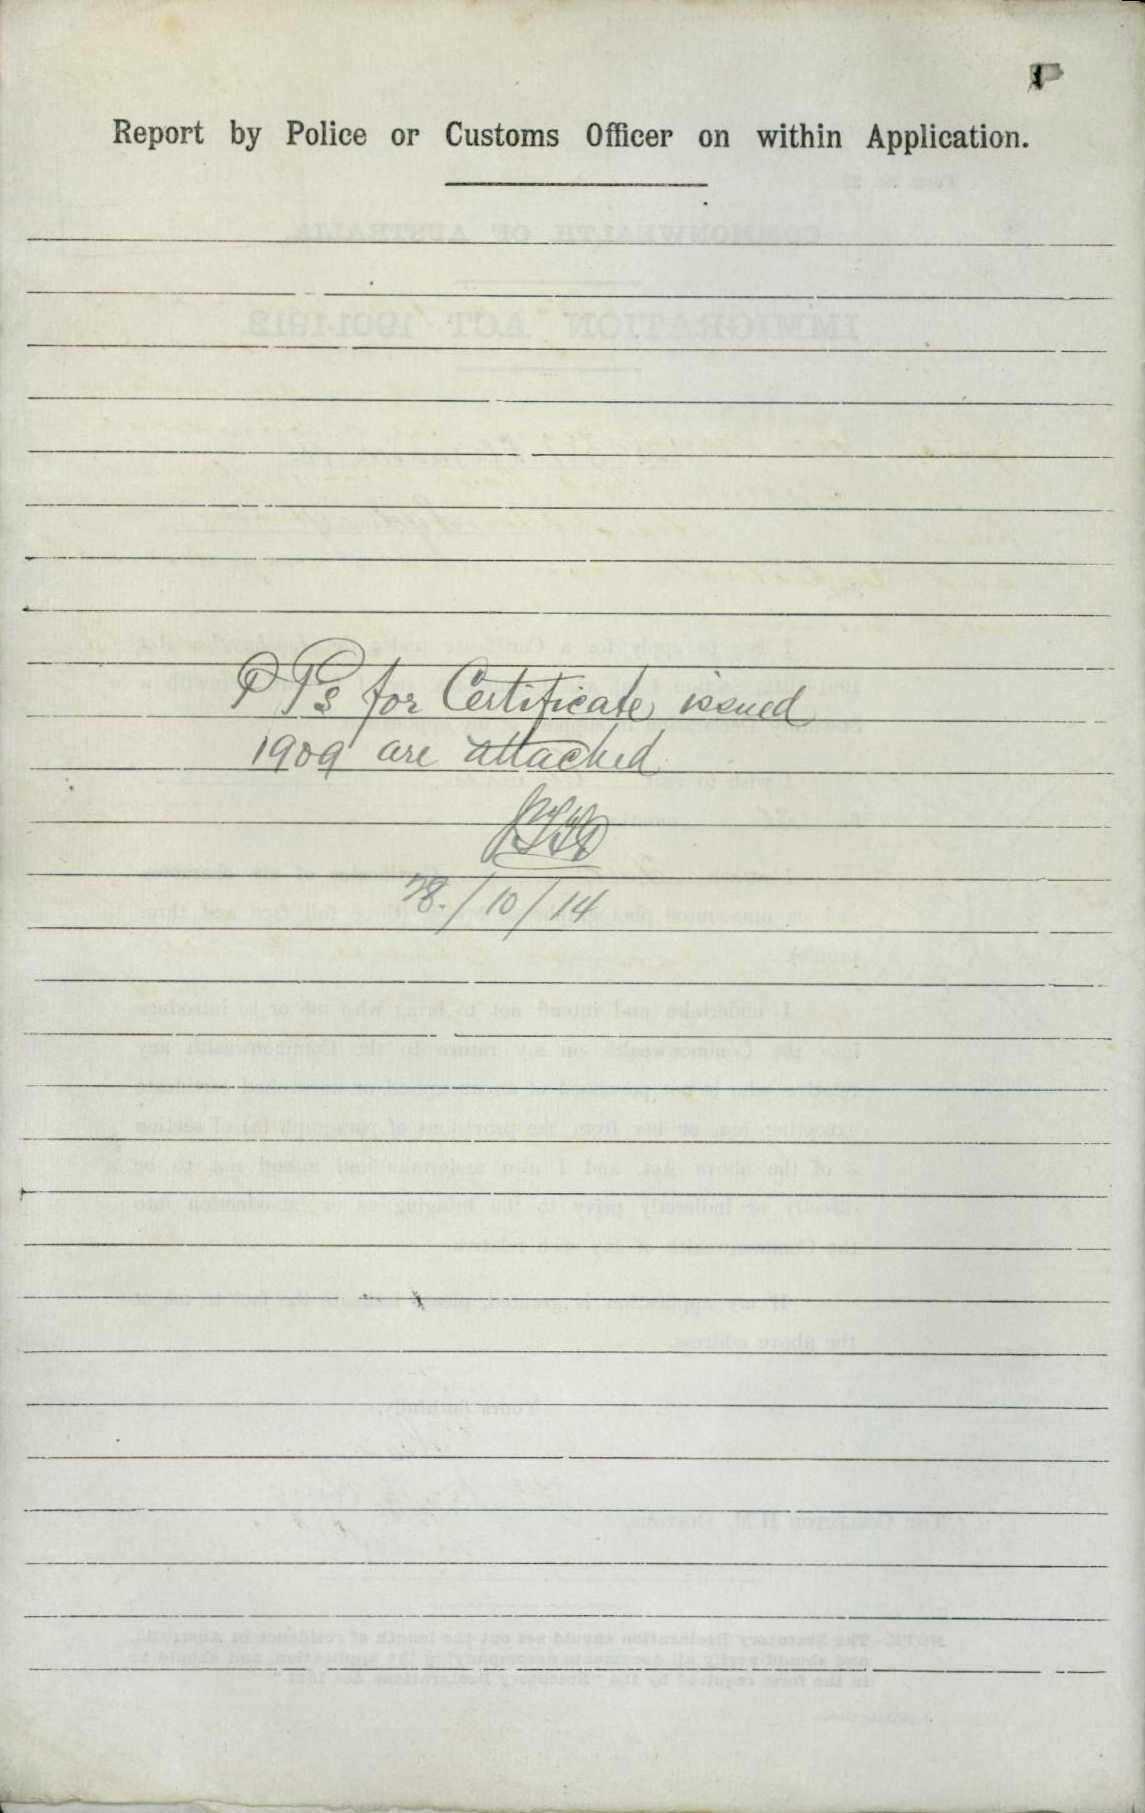 Report by Police or Customs Officer on within Application.
P Ps for Certificate issued
1909 are attached
28./10/14